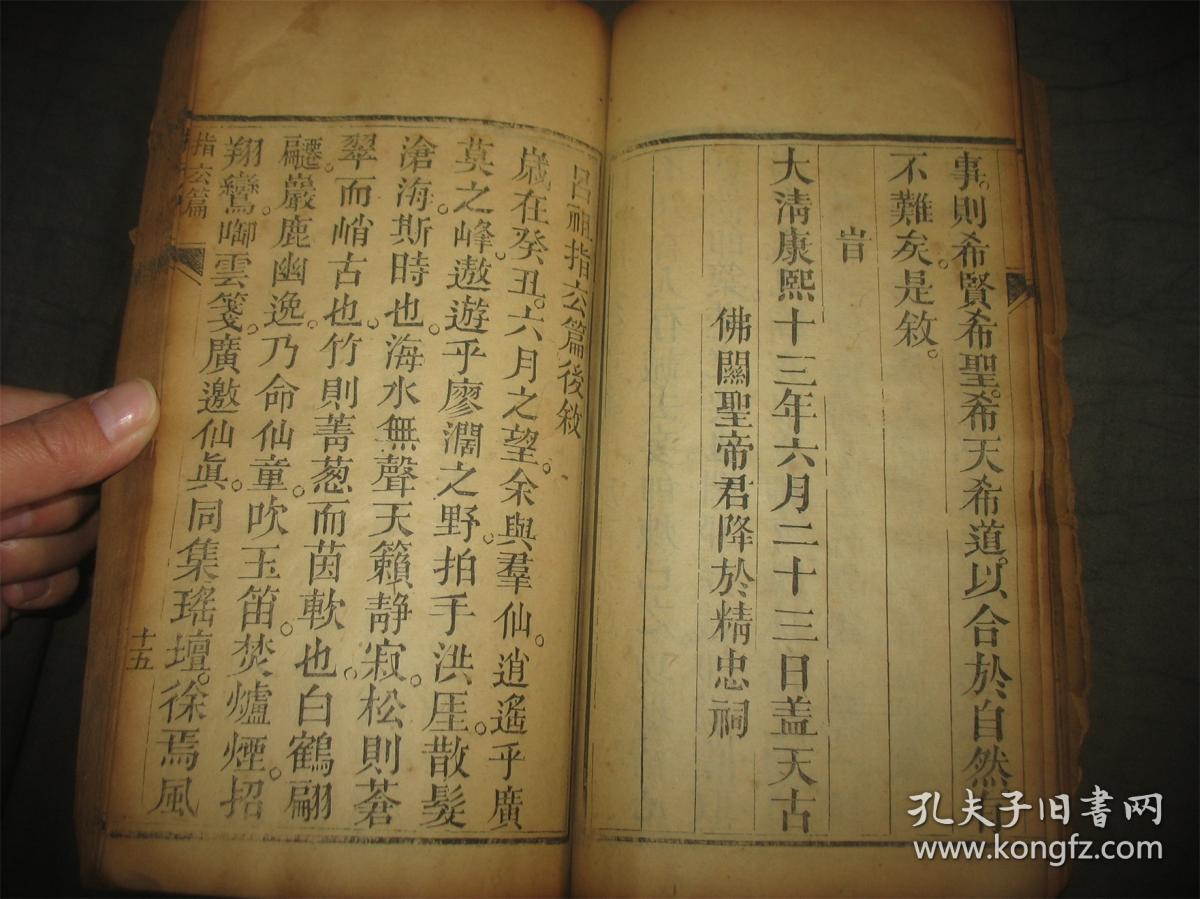 事則希賢希聖希天希道以合於自然
不難矣是敘
旹
大清康熙十三年六月二十三日盖天古
佛關聖帝君降於精忠祠
呂祖指玄篇後敘
歲在癸丑六月之望余與羣仙逍遙乎廣
莫之峰遨遊乎廖濶之野拍手洪厓散髮
滄海斯時也海水無聲天籟靜寂松則蒼
翠而峭古也竹則菁葱而茵軟也白鶴翩
䙴巖鹿幽逸乃命仙童吹玉笛焚爐煙招
翔鸞啣雲箋廣邀仙眞同集瑤壇徐焉風
指玄篇
十五
孔夫子旧书网
www.kongfz.com